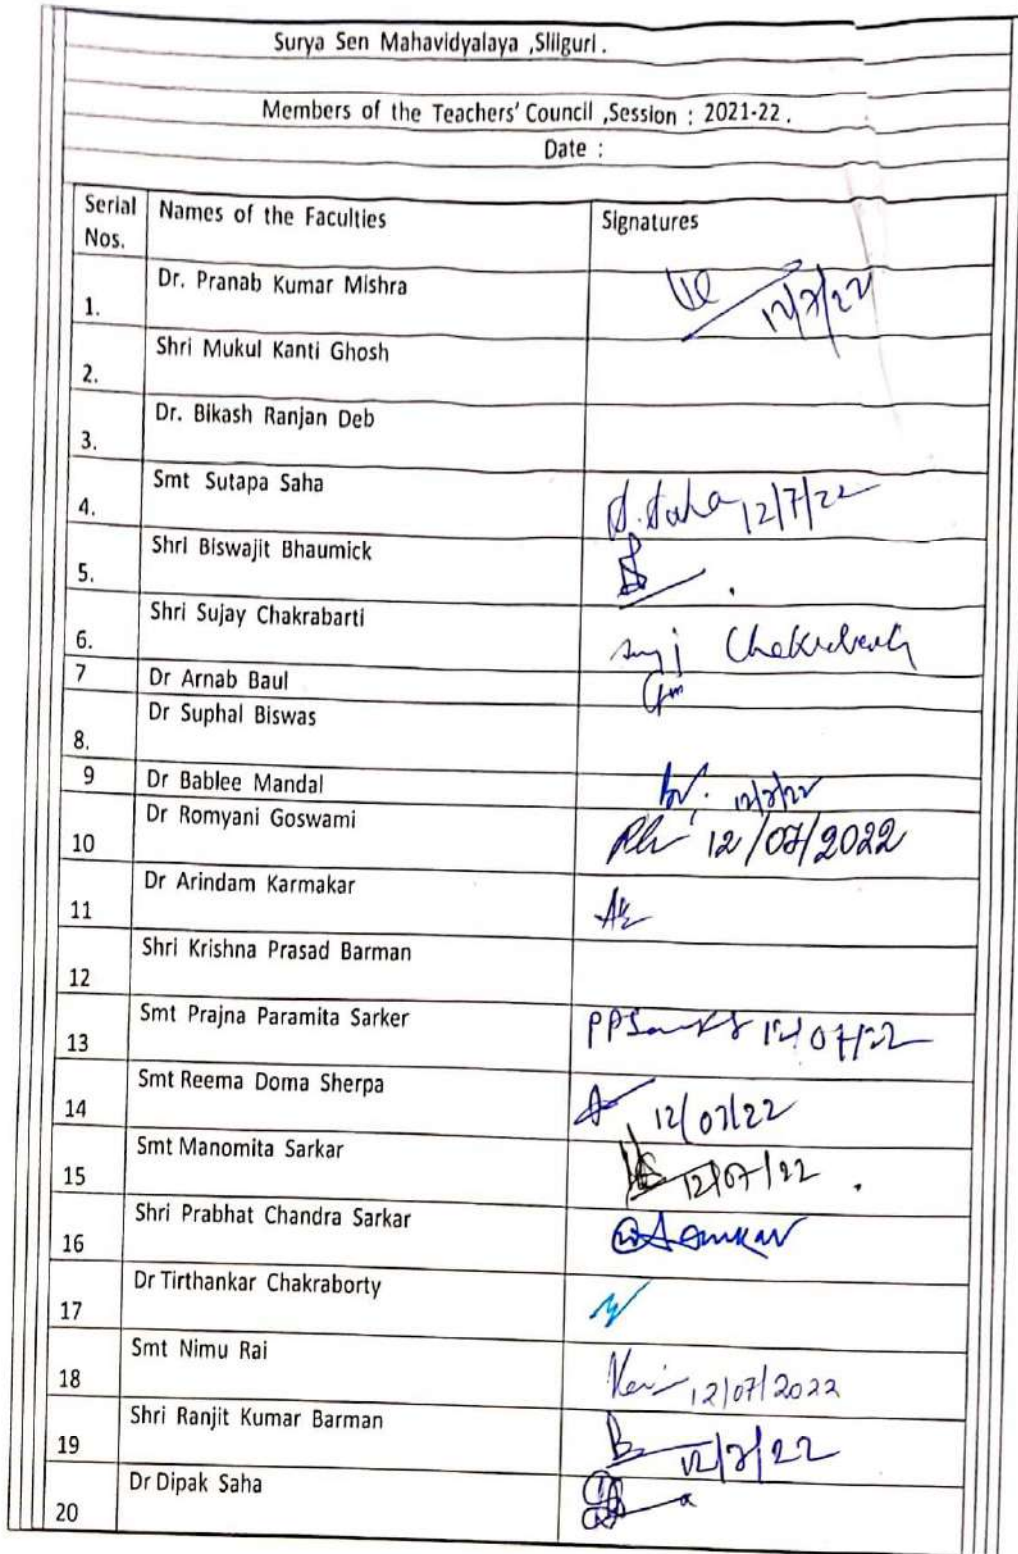 Surya Sen Mahavidyalaya ,Sliiguri .
Members of the Teachers' Council ,Session : 2021-22 .
Date :
Serial Nos. Names of the Faculties Signatures
1. Dr. Pranab Kumar Mishra 12/7/22
2. Shri Mukul Kanti Ghosh
3. Dr. Bikash Ranjan Deb
4. Smt Sutapa Saha S. Saha 12/7/22
5. Shri Biswajit Bhaumick
6. Shri Sujay Chakrabarti
7 Dr Arnab Baul
8. Dr Suphal Biswas
9 Dr Bablee Mandal 12/7/22
10 Dr Romyani Goswami 12/07/2022
11 Dr Arindam Karmakar
12 Shri Krishna Prasad Barman
13 Smt Prajna Paramita Sarker 12/07/22
14 Smt Reema Doma Sherpa 12/07/22
15 Smt Manomita Sarkar 12/07/22 .
16 Shri Prabhat Chandra Sarkar
17 Dr Tirthankar Chakraborty
18 Smt Nimu Rai 12/07/2022
19 Shri Ranjit Kumar Barman 12/7/22
20 Dr Dipak Saha